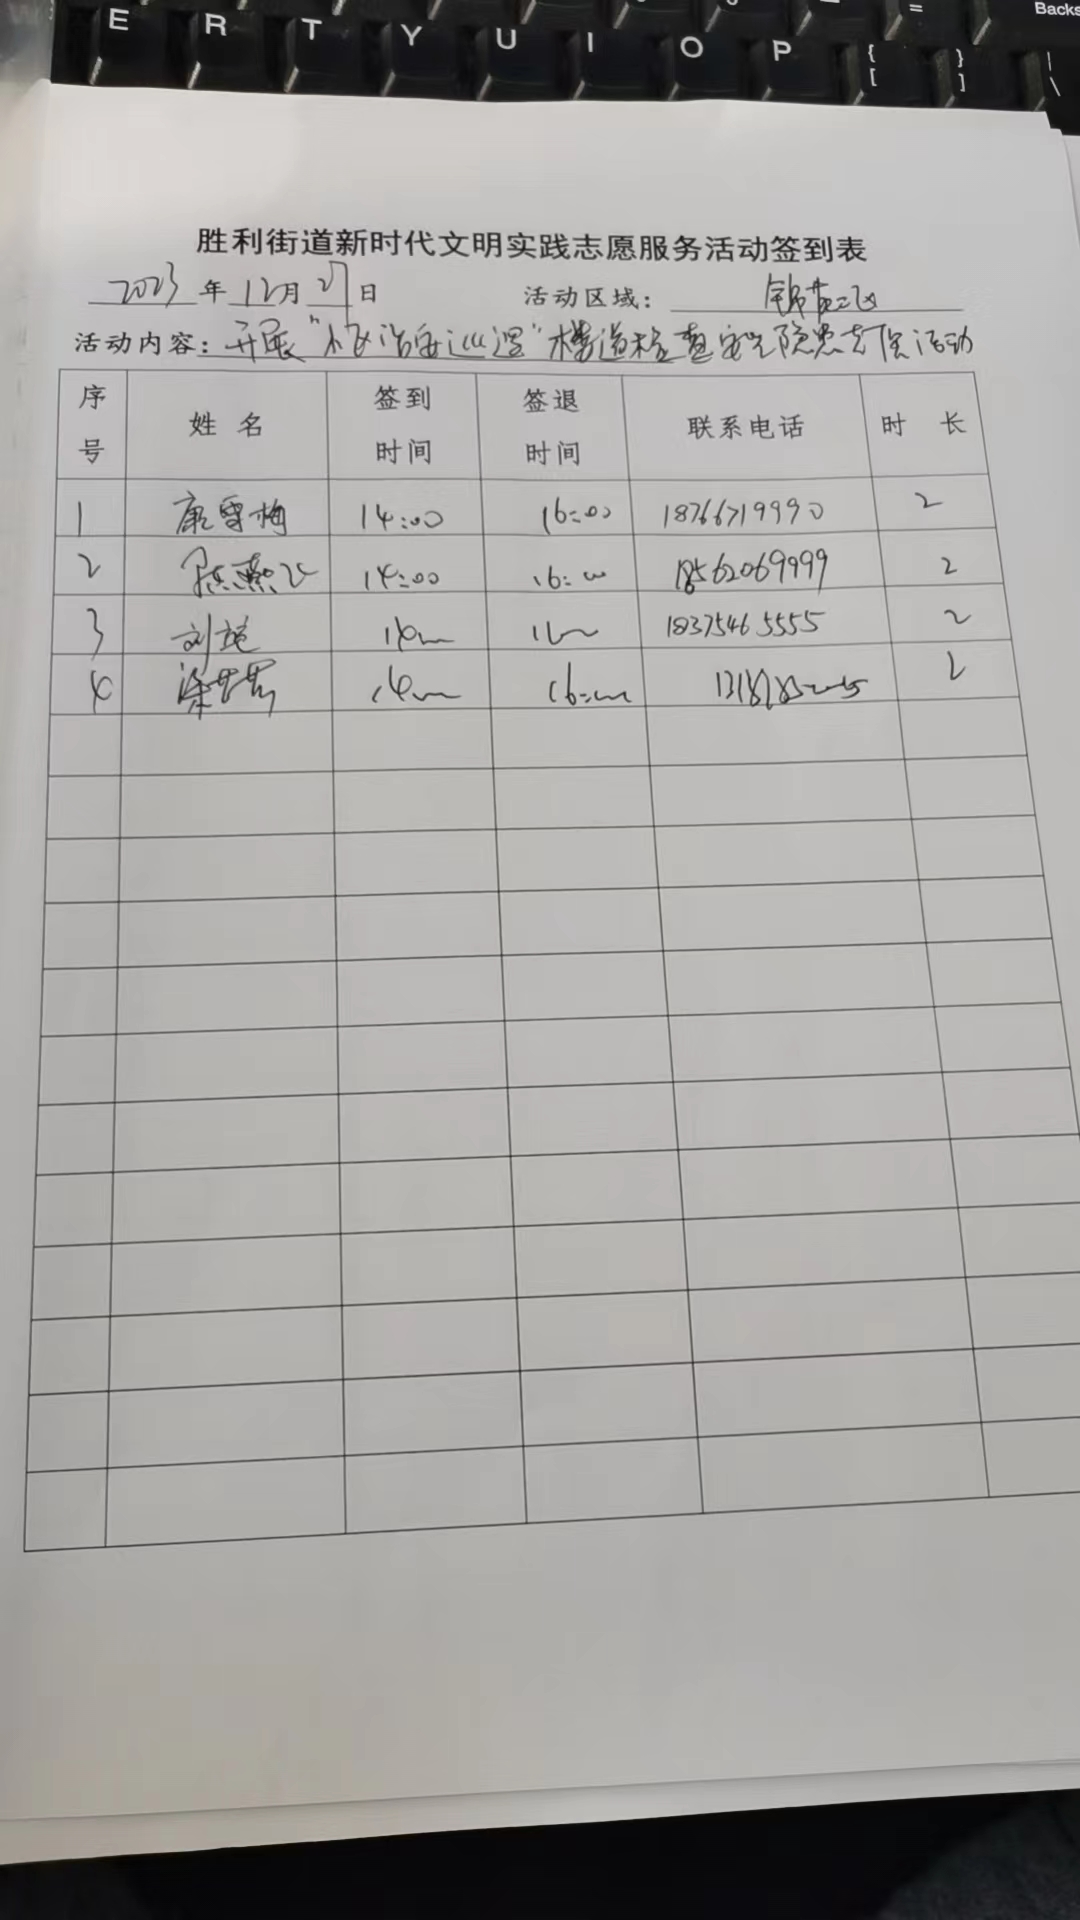 E R T Y U I O P { [ } ] | \ = Backs
胜利街道新时代文明实践志愿服务活动签到表
2023 年 12 月 27 日 活动区域:
活动内容: 开展" 巡逻"楼道检查安全隐患 活动
序号 姓名 签到时间 签退时间 联系电话 时长
1 康雪梅 14:00 16:00 18766719990 2
2 14:00 16:00 18562069999 2
3 刘 18375465555 2
4 梁 16:00 2